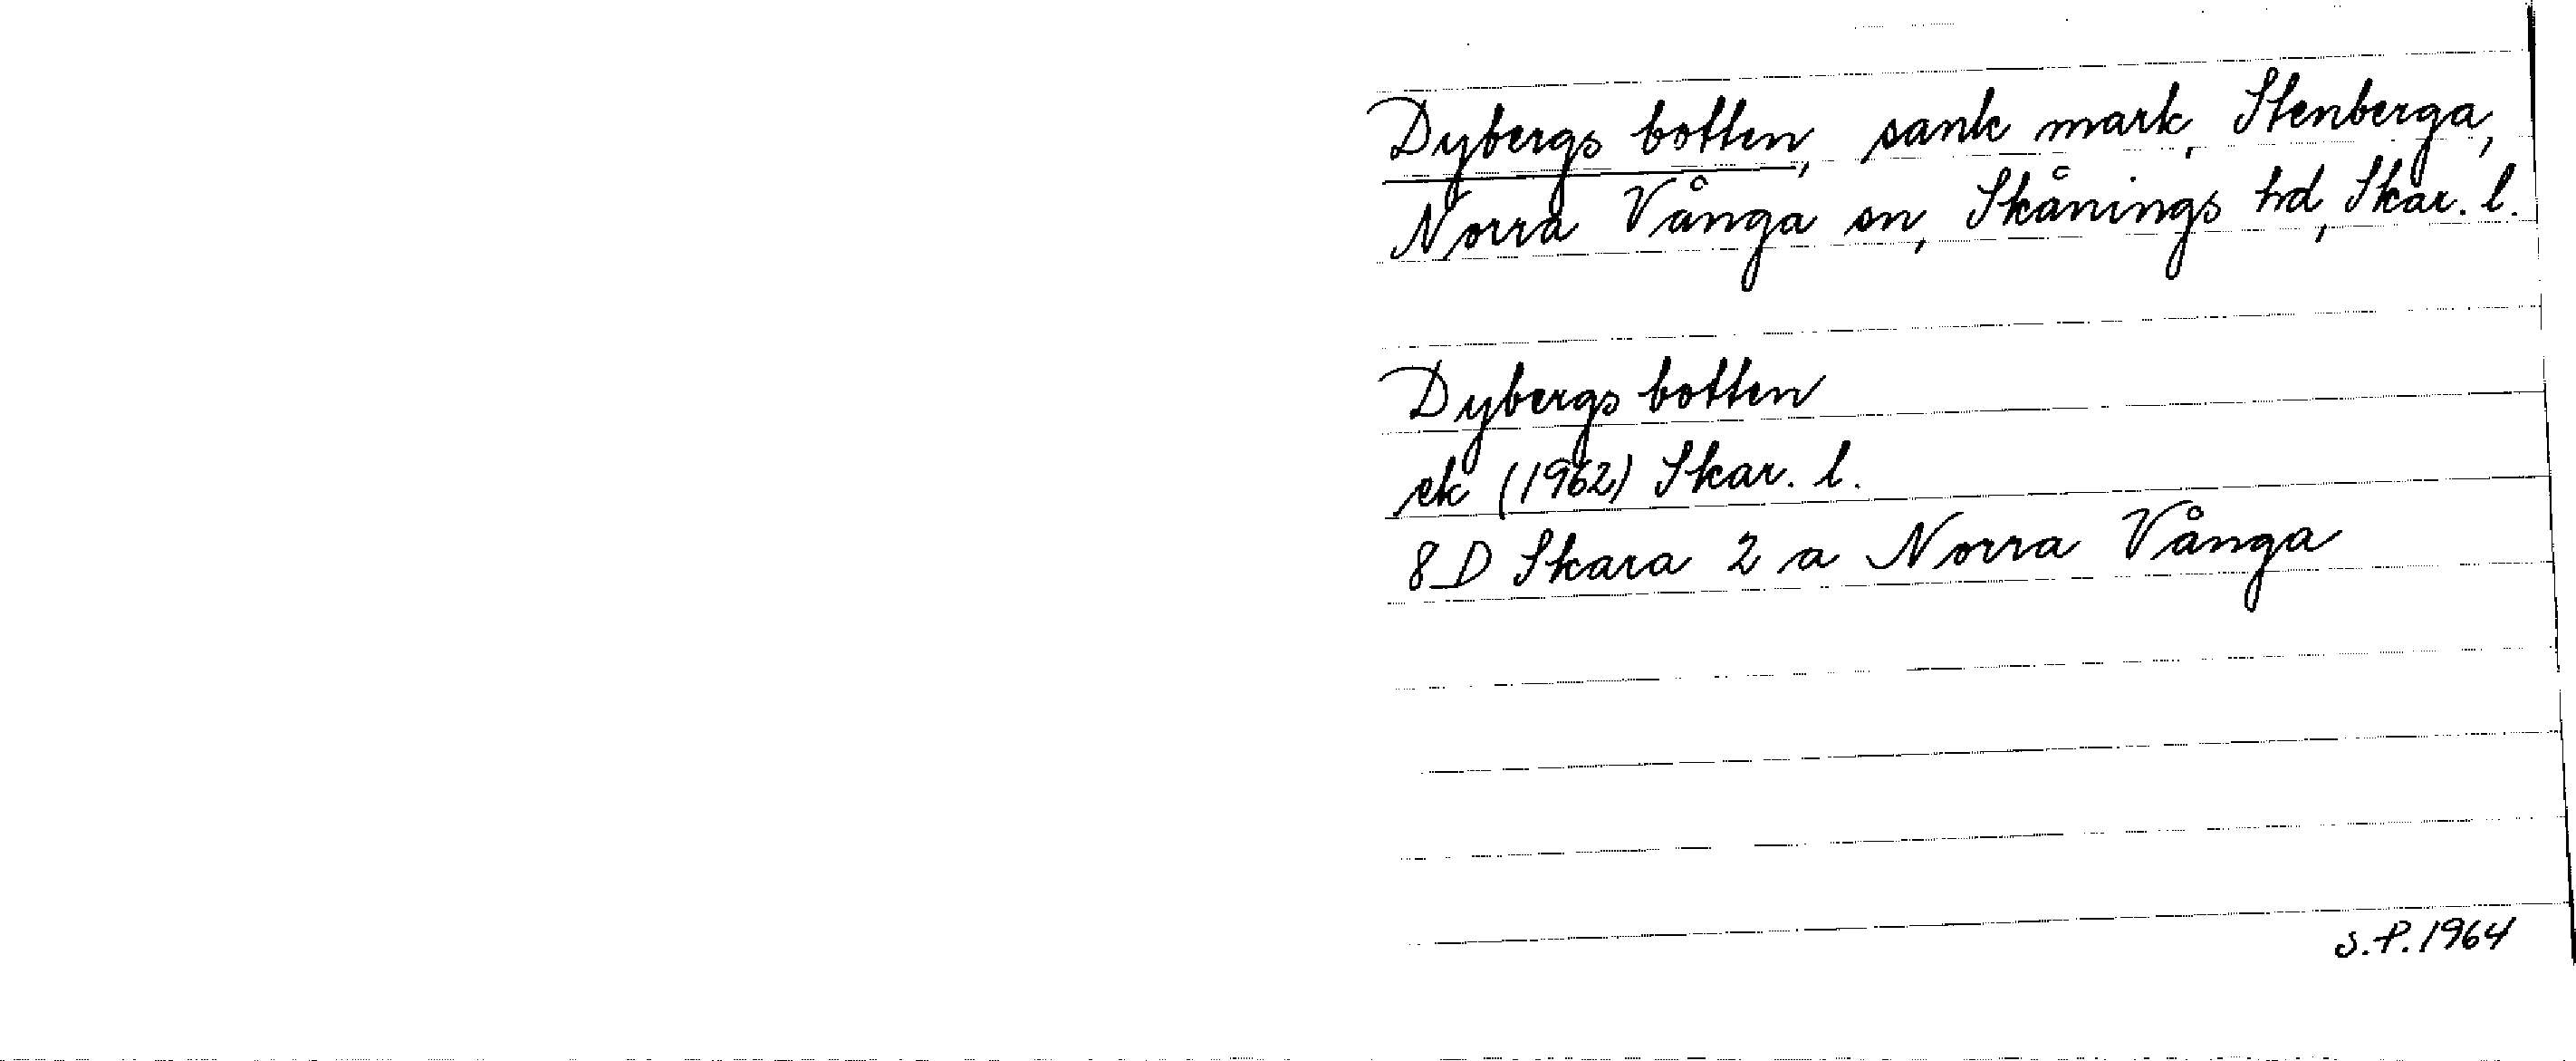 Dybergs botten, sank mark, Stenberga,
Norra Vånga sn, Skånings hd, Skar. l.
Dybergs botten
ek (1962) Skar. l.
8 D Skara 2 a Norra Vånga
S.P. 1964